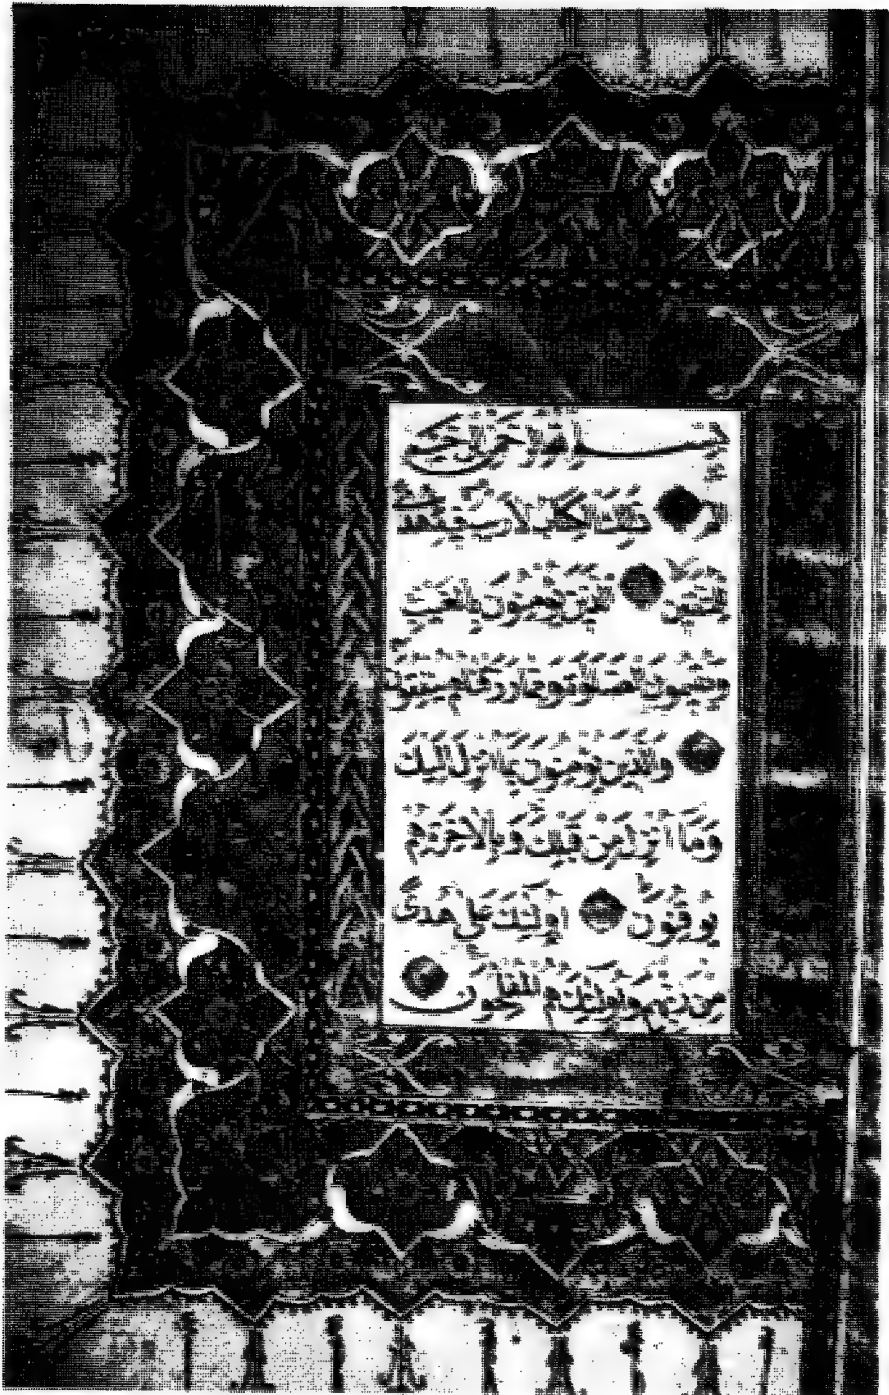 بِسْمِ اللَّهِ الرَّحْمَنِ الرَّحِيمِ
الم ذَلِكَ الْكِتَابُ لَا رَيْبَ فِيهِ هُدًى
لِلْمُتَّقِينَ الَّذِينَ يُؤْمِنُونَ بِالْغَيْبِ
وَيُقِيمُونَ الصَّلَوةَ وَمِمَّا رَزَقْنَاهُمْ يُنْفِقُونَ
وَالَّذِينَ يُؤْمِنُونَ بِمَا أُنْزِلَ إِلَيْكَ
وَمَا أُنْزِلَ مِنْ قَبْلِكَ وَبِالْآخِرَةِ هُمْ
يُوقِنُونَ أُولَئِكَ عَلَى هُدًى
مِنْ رَبِّهِمْ وَأُولَئِكَ هُمُ الْمُفْلِحُونَ